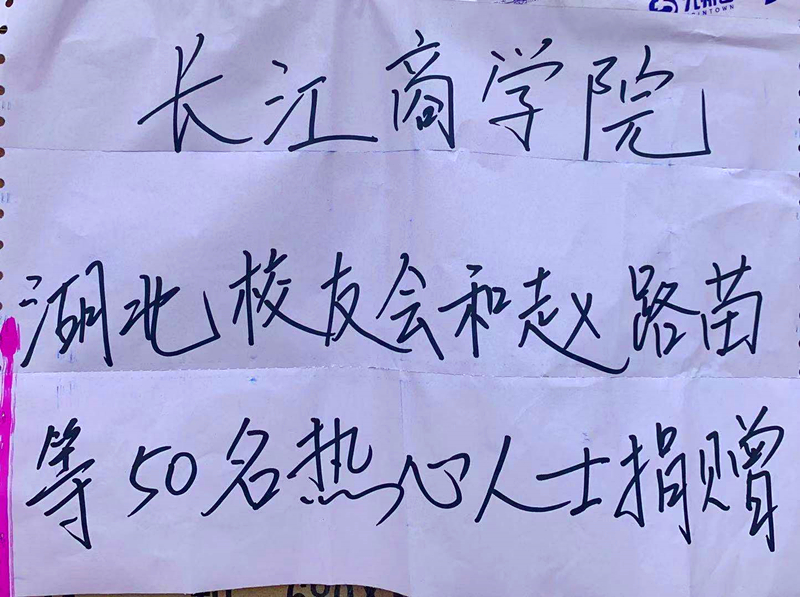 长江商学院
湖北校友会和赵路苗
等50名热心人士捐赠